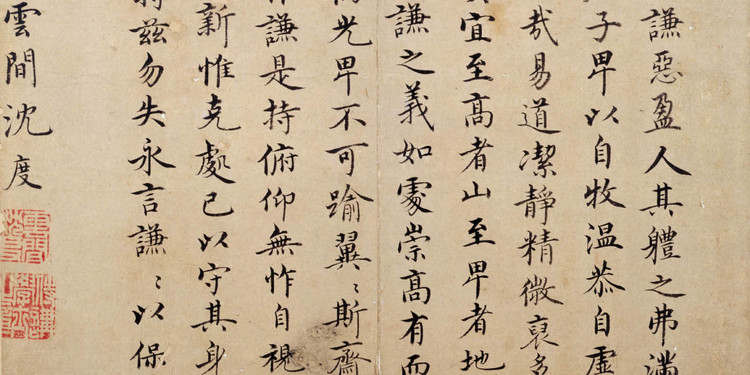 謙惡盈人其體之弗滿
子卑以自牧溫恭自虛
哉易道潔靜精微裒多
宜至高者山至卑者地
謙之義如處崇高有而
光卑不可踰翼〻斯齋
謙是持俯仰無怍自視
新惟克處己以守其身
茲勿失永言謙〻以保
雲間沈度